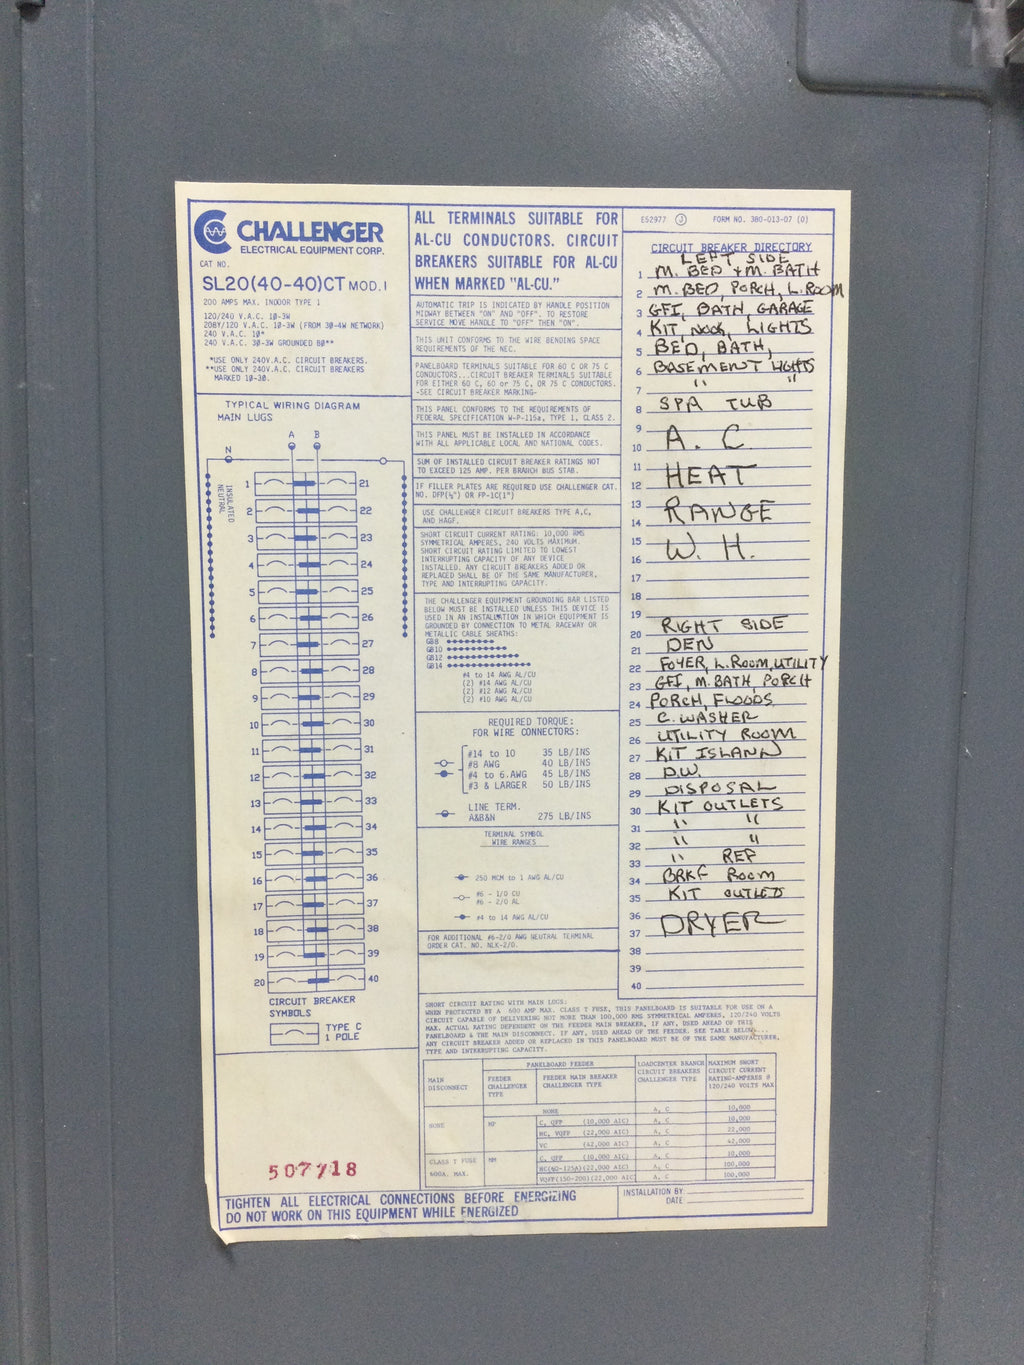 CHALLENGER
ELECTRICAL EQUIPMENT CORP.
CAT NO.
SL20(40-40)CT MOD.1
200 AMPS MAX. INDOOR TYPE 1
120/240 V.A.C. 1Ø-3W
208Y/120 V.A.C. 1Ø-3W (FROM 3Ø-4W NETWORK)
240 V.A.C. 1Ø*
240 V.A.C. 3Ø-3W GROUNDED BØ**
*USE ONLY 240V.A.C. CIRCUIT BREAKERS.
**USE ONLY 240V.A.C. CIRCUIT BREAKERS
MARKED 1Ø-3Ø.
TYPICAL WIRING DIAGRAM
MAIN LUGS
A B
N
INSULATED
NEUTRAL
1 21
2 22
3 23
4 24
5 25
6 26
7 27
8 28
9 29
10 30
11 31
12 32
13 33
14 34
15 35
16 36
17 37
18 38
19 39
20 40
CIRCUIT BREAKER
SYMBOLS
TYPE C
1 POLE
507718
ALL TERMINALS SUITABLE FOR
AL-CU CONDUCTORS. CIRCUIT
BREAKERS SUITABLE FOR AL-CU
WHEN MARKED "AL-CU."
AUTOMATIC TRIP IS INDICATED BY HANDLE POSITION
MIDWAY BETWEEN "ON" AND "OFF". TO RESTORE
SERVICE MOVE HANDLE TO "OFF" THEN "ON".
THIS UNIT CONFORMS TO THE WIRE BENDING SPACE
REQUIREMENTS OF THE NEC.
PANELBOARD TERMINALS SUITABLE FOR 60 C OR 75 C
CONDUCTORS...CIRCUIT BREAKER TERMINALS SUITABLE
FOR EITHER 60 C, 60 or 75 C, OR 75 C CONDUCTORS.
-SEE CIRCUIT BREAKER MARKING-
THIS PANEL CONFORMS TO THE REQUIREMENTS OF
FEDERAL SPECIFICATION W-P-115a, TYPE 1, CLASS 2.
THIS PANEL MUST BE INSTALLED IN ACCORDANCE
WITH ALL APPLICABLE LOCAL AND NATIONAL CODES.
SUM OF INSTALLED CIRCUIT BREAKER RATINGS NOT
TO EXCEED 125 AMP. PER BRANCH BUS STAB.
IF FILLER PLATES ARE REQUIRED USE CHALLENGER CAT.
NO. DFP(½") OR FP-1C(1")
USE CHALLENGER CIRCUIT BREAKERS TYPE A,C,
AND HAGF.
SHORT CIRCUIT CURRENT RATING: 10,000 RMS
SYMMETRICAL AMPERES, 240 VOLTS MAXIMUM.
SHORT CIRCUIT RATING LIMITED TO LOWEST
INTERRUPTING CAPACITY OF ANY DEVICE
INSTALLED. ANY CIRCUIT BREAKERS ADDED OR
REPLACED SHALL BE OF THE SAME MANUFACTURER,
TYPE AND INTERRUPTING CAPACITY.
THE CHALLENGER EQUIPMENT GROUNDING BAR LISTED
BELOW MUST BE INSTALLED UNLESS THIS DEVICE IS
USED IN AN INSTALLATION IN WHICH EQUIPMENT IS
GROUNDED BY CONNECTION TO METAL RACEWAY OR
METALLIC CABLE SHEATHS:
GB8
GB10
GB12
GB14
#4 to 14 AWG AL/CU
(2) #14 AWG AL/CU
(2) #12 AWG AL/CU
(2) #10 AWG AL/CU
REQUIRED TORQUE:
FOR WIRE CONNECTORS:
#14 to 10 35 LB/INS
#8 AWG 40 LB/INS
#4 to 6 AWG 45 LB/INS
#3 & LARGER 50 LB/INS
LINE TERM.
A&B&N 275 LB/INS
TERMINAL SYMBOL
WIRE RANGES
250 MCM to 1 AWG AL/CU
#6 - 1/0 CU
#6 - 2/0 AL
#4 to 14 AWG AL/CU
FOR ADDITIONAL #6-2/0 AWG NEUTRAL TERMINAL
ORDER CAT. NO. NLK-2/0.
E52977 J FORM NO. 380-013-07 (0)
CIRCUIT BREAKER DIRECTORY
LEFT SIDE
1 M. BED + M. BATH
2 M. BED, PORCH, L. ROOM
3 GFI, BATH, GARAGE
4 KIT, NOOK, LIGHTS
5 BED, BATH,
6 BASEMENT LIGHTS
7 " "
8 SPA TUB
9
10 A. C
11
12 HEAT
13
14 RANGE
15
16 W. H.
17
18
19
20 RIGHT SIDE
21 DEN
22 FOYER, L. ROOM, UTILITY
23 GFI, M. BATH, PORCH
24 PORCH, FLOODS
25 C. WASHER
26 UTILITY ROOM
27 KIT ISLAND
28 D.W.
29 DISPOSAL
30 KIT OUTLETS
31 " "
32 " "
33 " REF
34 BRKF ROOM
35 KIT OUTLETS
36
37 DRYER
38
39
40
SHORT CIRCUIT RATING WITH MAIN LUGS:
WHEN PROTECTED BY A 600 AMP MAX. CLASS T FUSE, THIS PANELBOARD IS SUITABLE FOR USE ON A
CIRCUIT CAPABLE OF DELIVERING NOT MORE THAN 100,000 RMS SYMMETRICAL AMPERES, 120/240 VOLTS
MAX. ACTUAL RATING DEPENDENT ON THE FEEDER MAIN BREAKER, IF ANY, USED AHEAD OF THIS
PANELBOARD & THE MAIN DISCONNECT. IF ANY, USED AHEAD OF THE FEEDER. SEE TABLE BELOW...
ANY CIRCUIT BREAKER ADDED OR REPLACED IN THIS PANELBOARD MUST BE OF THE SAME MANUFACTURER,
TYPE AND INTERRUPTING CAPACITY.
MAIN DISCONNECT
PANELBOARD FEEDER
FEEDER CHALLENGER TYPE
FEEDER MAIN BREAKER CHALLENGER TYPE
LOADCENTER BRANCH CIRCUIT BREAKERS CHALLENGER TYPE
MAXIMUM SHORT CIRCUIT CURRENT RATING-AMPERES @ 120/240 VOLTS MAX
NONE A, C 10,000
NONE C, QFP (10,000 AIC) A, C 10,000
HC, VQFP (22,000 AIC) A, C 22,000
VC (42,000 AIC) A, C 42,000
CLASS T FUSE 600A. MAX. MM C, QFP (10,000 AIC) A, C 10,000
HC(40-125A)(22,000 AIC) A, C 100,000
VQFP(150-200)(22,000 AIC) A, C 100,000
TIGHTEN ALL ELECTRICAL CONNECTIONS BEFORE ENERGIZING
DO NOT WORK ON THIS EQUIPMENT WHILE ENERGIZED
INSTALLATION BY
DATE